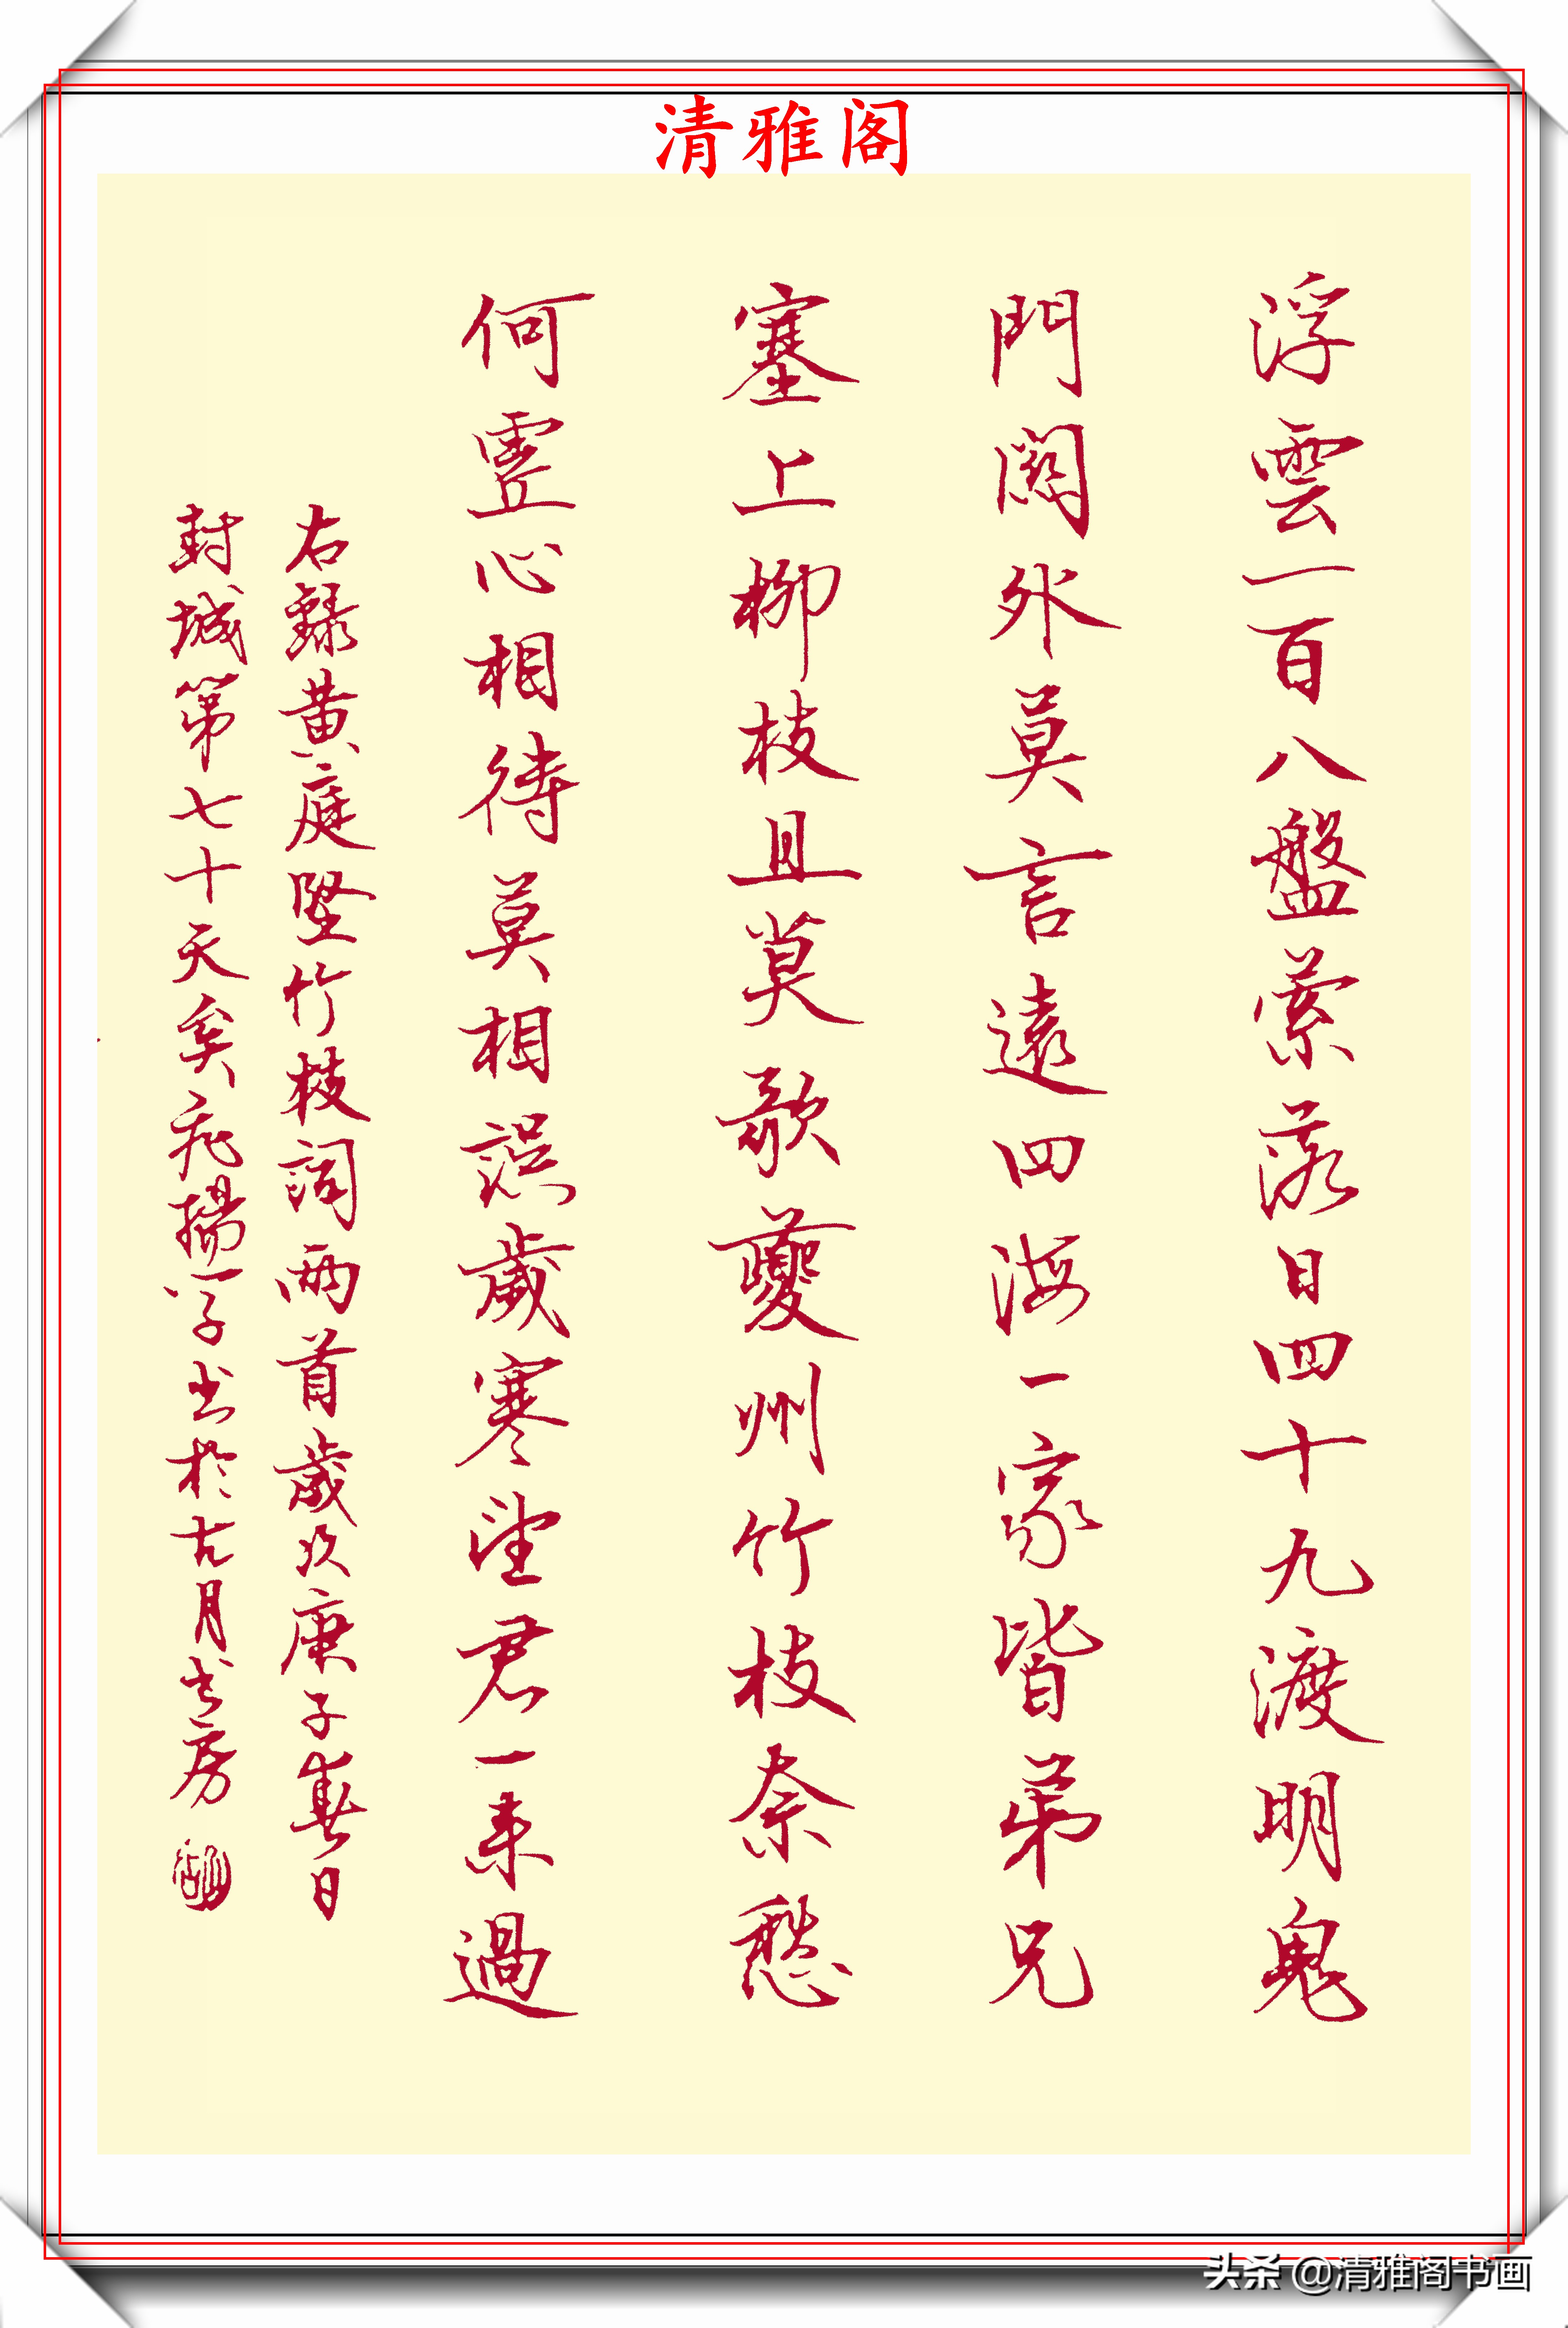 清雅阁
浮雲一百八盤縈落日四十九渡明鬼
門關外莫言遠四海一家皆弟兄
塞上柳枝且莫歌夔州竹枝奈愁
何虛心相待莫相誤歲寒望君一来過
右録黄庭堅竹枝詞兩首歲次庚子春日
封城第七十天矣书於古月书房
头条 @清雅阁书画